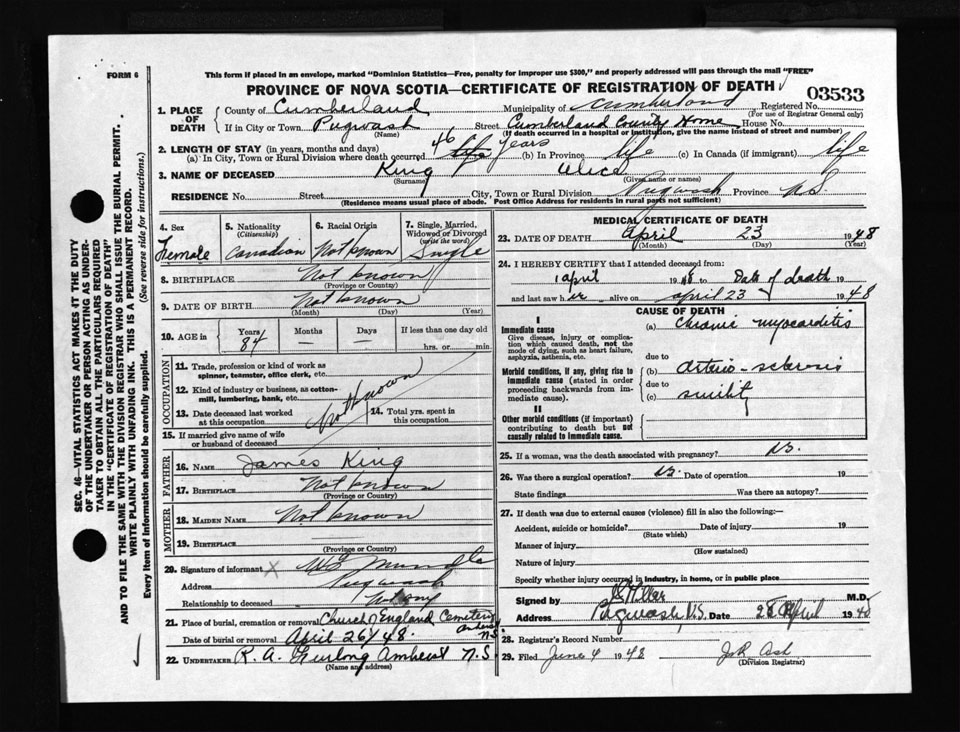 FORM 6
This form if placed in an envelope, marked "Dominion Statistics—Free, penalty for improper use $300," and properly addressed will pass through the mail "FREE"
PROVINCE OF NOVA SCOTIA—CERTIFICATE OF REGISTRATION OF DEATH
03533
1. PLACE OF DEATH
County of Cumberland Municipality of Cumberland Registered No.
(For use of Registrar General only)
If in City or Town Pugwash Street Cumberland County Home House No.
(Name) (If death occurred in a hospital or institution, give the name instead of street and number)
2. LENGTH OF STAY (in years, months and days)
(a) In City, Town or Rural Division where death occurred 46 years (b) In Province life (c) In Canada (if immigrant) life
3. NAME OF DECEASED King Alice
(Surname) (Given name or names)
RESIDENCE No. Street City, Town or Rural Division Pugwash Province N.S.
(Residence means usual place of abode. Post Office Address for residents in rural parts not sufficient)
4. Sex Female
5. Nationality (Citizenship) Canadian
6. Racial Origin Not known
7. Single, Married, Widowed or Divorced (write the word) Single
8. BIRTHPLACE Not known
(Province or County)
9. DATE OF BIRTH Not known
(Month) (Day) (Year)
10. AGE in Years 84 Months — Days — If less than one day old
hrs. or min.
OCCUPATION
11. Trade, profession or kind of work as spinner, teamster, office clerk, etc.
12. Kind of industry or business, as cotton-mill, lumbering, bank, etc.
Not known
13. Date deceased last worked at this occupation
14. Total yrs. spent in this occupation
15. If married give name of wife or husband of deceased
FATHER
16. NAME James King
17. BIRTHPLACE Not known
(Province or County)
MOTHER
18. MAIDEN NAME Not known
19. BIRTHPLACE
(Province or Country)
20. Signature of informant X
Address Pugwash
Relationship to deceased Not any
21. Place of burial, cremation or removal Church of England Cemetery Amherst N.S.
Date of burial or removal April 26/48.
22. UNDERTAKER R. A. Furlong Amherst N.S.
(Name and address)
MEDICAL CERTIFICATE OF DEATH
23. DATE OF DEATH April 23 1948
(Month) (Day) (Year)
24. I HEREBY CERTIFY that I attended deceased from:
1 April 1948 to Date of death 19
and last saw her alive on April 23 1948
CAUSE OF DEATH
I
Immediate cause
Give disease, injury or complication which caused death, not the mode of dying, such as heart failure, asphyxia, asthenia, etc.
(a) Chronic myocarditis
due to
Morbid conditions, if any, giving rise to immediate cause (stated in order proceeding backwards from immediate cause).
(b) Arterio-sclerosis
due to
(c) senility
II
Other morbid conditions (if important) contributing to death but not causally related to immediate cause.
25. If a woman, was the death associated with pregnancy? No.
26. Was there a surgical operation? No. Date of operation 19
State findings Was there an autopsy?
27. If death was due to external causes (violence) fill in also the following:—
Accident, suicide or homicide? Date of injury 19
(State which)
Manner of injury
(How sustained)
Nature of injury
Specify whether injury occurred in industry, in home, or in public place
Signed by M.D.
Address Pugwash, N.S. Date 28 April 1948
28. Registrar's Record Number
29. Filed June 4 1948
(Division Registrar)
SEC. 46—VITAL STATISTICS ACT MAKES IT THE DUTY
OF THE UNDERTAKER OR PERSON ACTING AS UNDER-
TAKER TO OBTAIN ALL THE PARTICULARS REQUIRED
IN THE "CERTIFICATE OF REGISTRATION OF DEATH"
AND TO FILE THE SAME WITH THE DIVISION REGISTRAR WHO SHALL ISSUE THE BURIAL PERMIT.
WRITE PLAINLY WITH UNFADING INK. THIS IS A PERMANENT RECORD.
Every item of Information should be carefully supplied. (See reverse side for instructions).